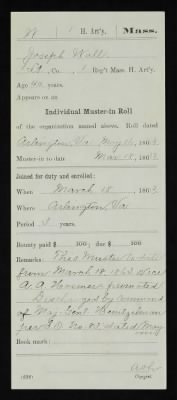 W 1 H. Art'y. Mass.
Joseph Wall
Lt., Co. , 1 Reg't Mass. H. Art'y.
Age 40 years.
Appears on an
Individual Muster-in Roll
of the organization named above. Roll dated
Arlington, Va May 16, 1863.
Muster-in to date Mar 18, 1863.
Joined for duty and enrolled:
When March 18, 1863.
Where Arlington, Va
Period 3 years.
Bounty paid $ 100; due $ 100
Remarks: This Muster to date
from March 18, 1863 vice
A. A. promoted
Discharged by command
of Maj. Genl Heintzelman
per S.O. No. 82 dated May
Book mark:
(636) Copyist.